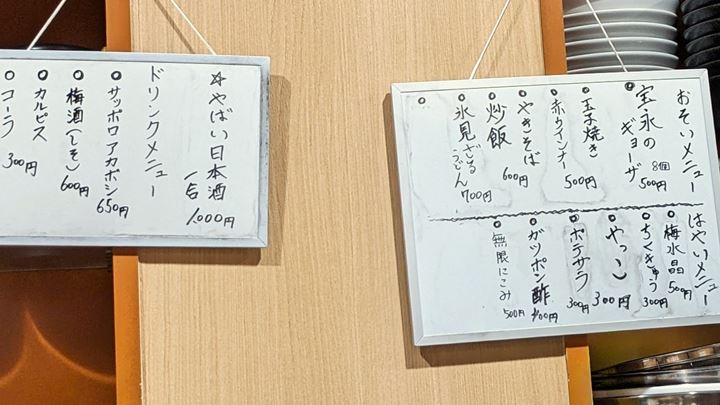 ☆やばい日本酒
一合 1,000円
ドリンクメニュー
○サッポロアカボシ 650円
○梅酒(しそ) 600円
○カルピス
○コーラ 300円
おそいメニュー
宝永のギョーザ 8個 500円
玉子焼き
赤ウインナー 500円
やきそば 600円
炒飯
氷見ざるうどん 700円
はやいメニュー
梅水晶 500円
ちくきゅう 300円
やっこ 300円
ポテサラ 300円
ガツポン酢 400円
無限にこみ 500円